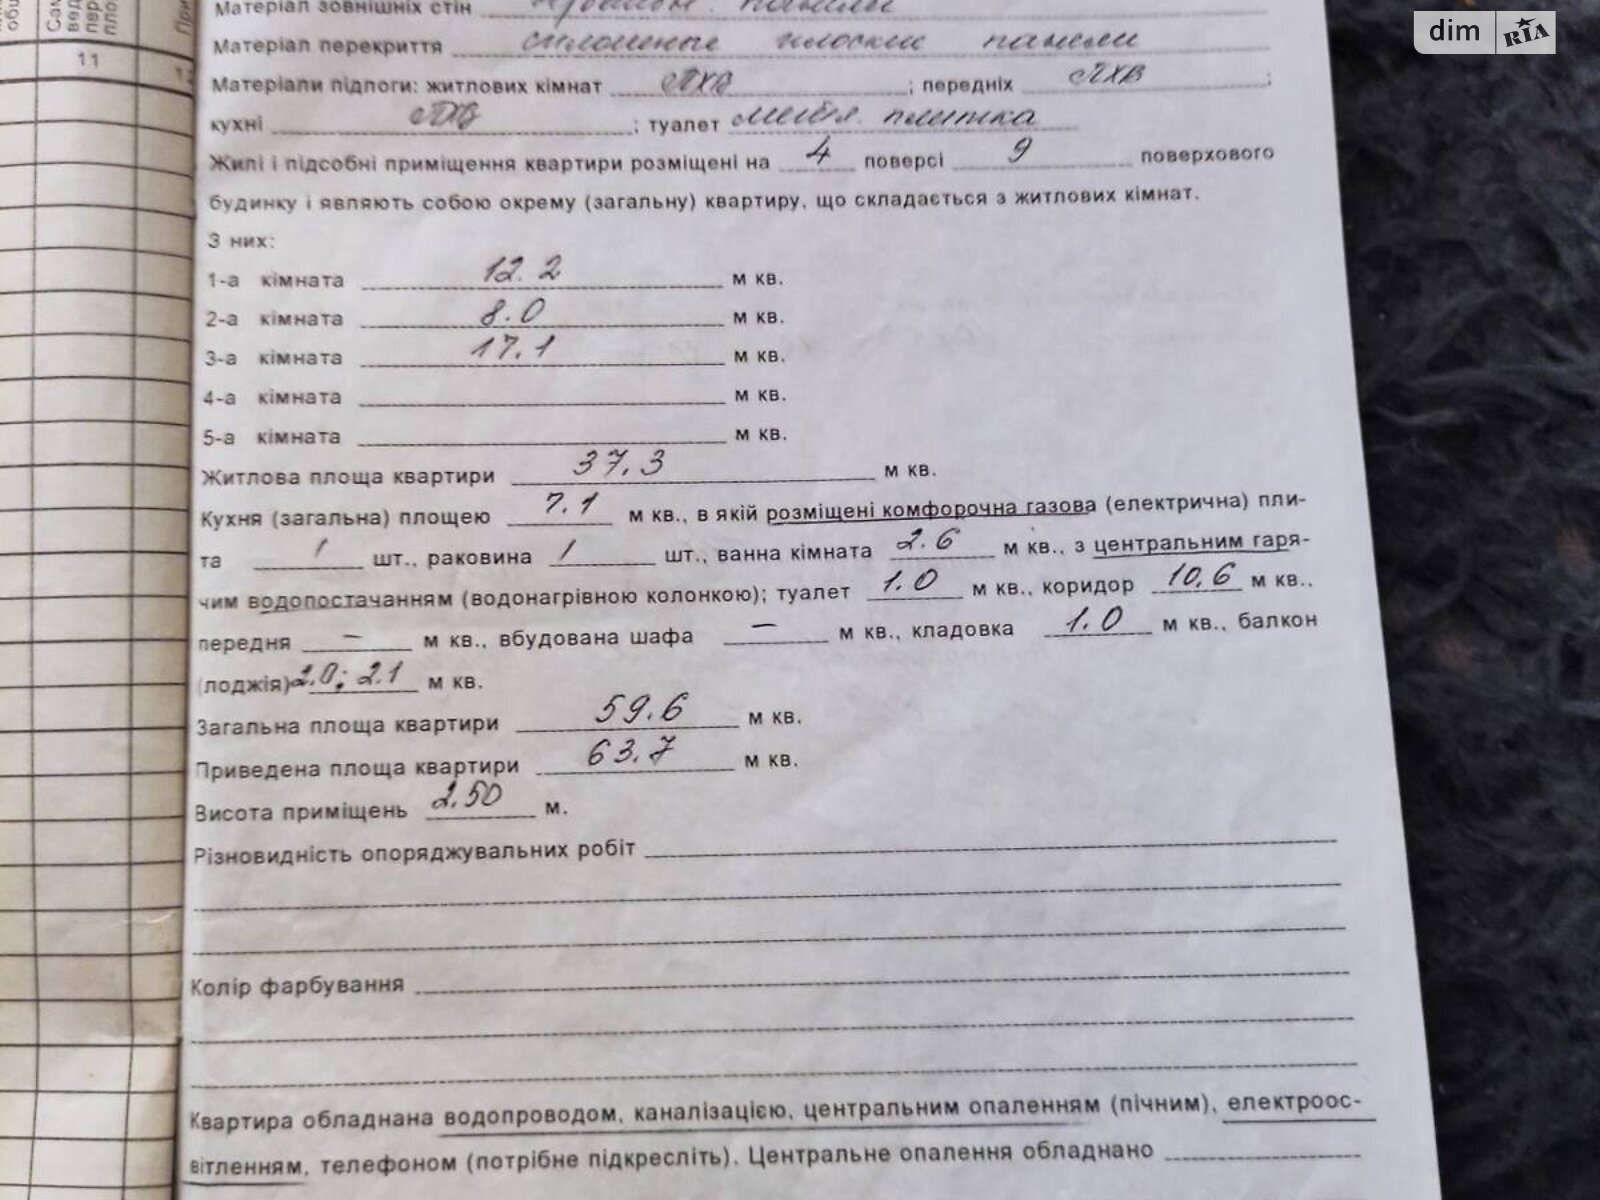 dim RIA
11
12
Матеріал зовнішніх стін панелі
Матеріал перекриття сплошные плоские панели
Матеріали підлоги: житлових кімнат ПХВ ; передніх ПХВ ;
кухні ПХВ ; туалет плитка
Жилі і підсобні приміщення квартири розміщені на 4 поверсі 9 поверхового
будинку і являють собою окрему (загальну) квартиру, що складається з житлових кімнат.
З них:
1-а кімната 12.2 м кв.
2-а кімната 8.0 м кв.
3-а кімната 17.1 м кв.
4-а кімната м кв.
5-а кімната м кв.
Житлова площа квартири 37.3 м кв.
Кухня (загальна) площею 7.1 м кв., в якій розміщені комфорочна газова (електрична) пли-
та 1 шт., раковина 1 шт., ванна кімната 2.6 м кв., з центральним гаря-
чим водопостачанням (водонагрівною колонкою); туалет 1.0 м кв., коридор 10,6 м кв.,
передня — м кв., вбудована шафа — м кв., кладовка 1.0 м кв., балкон
(лоджія) 2.0; 2.1 м кв.
Загальна площа квартири 59.6 м кв.
Приведена площа квартири 63.7 м кв.
Висота приміщень 2.50 м.
Різновидність опоряджувальних робіт
Колір фарбування
Квартира обладнана водопроводом, каналізацією, центральним опаленням (пічним), електроос-
вітленням, телефоном (потрібне підкресліть). Центральне опалення обладнано